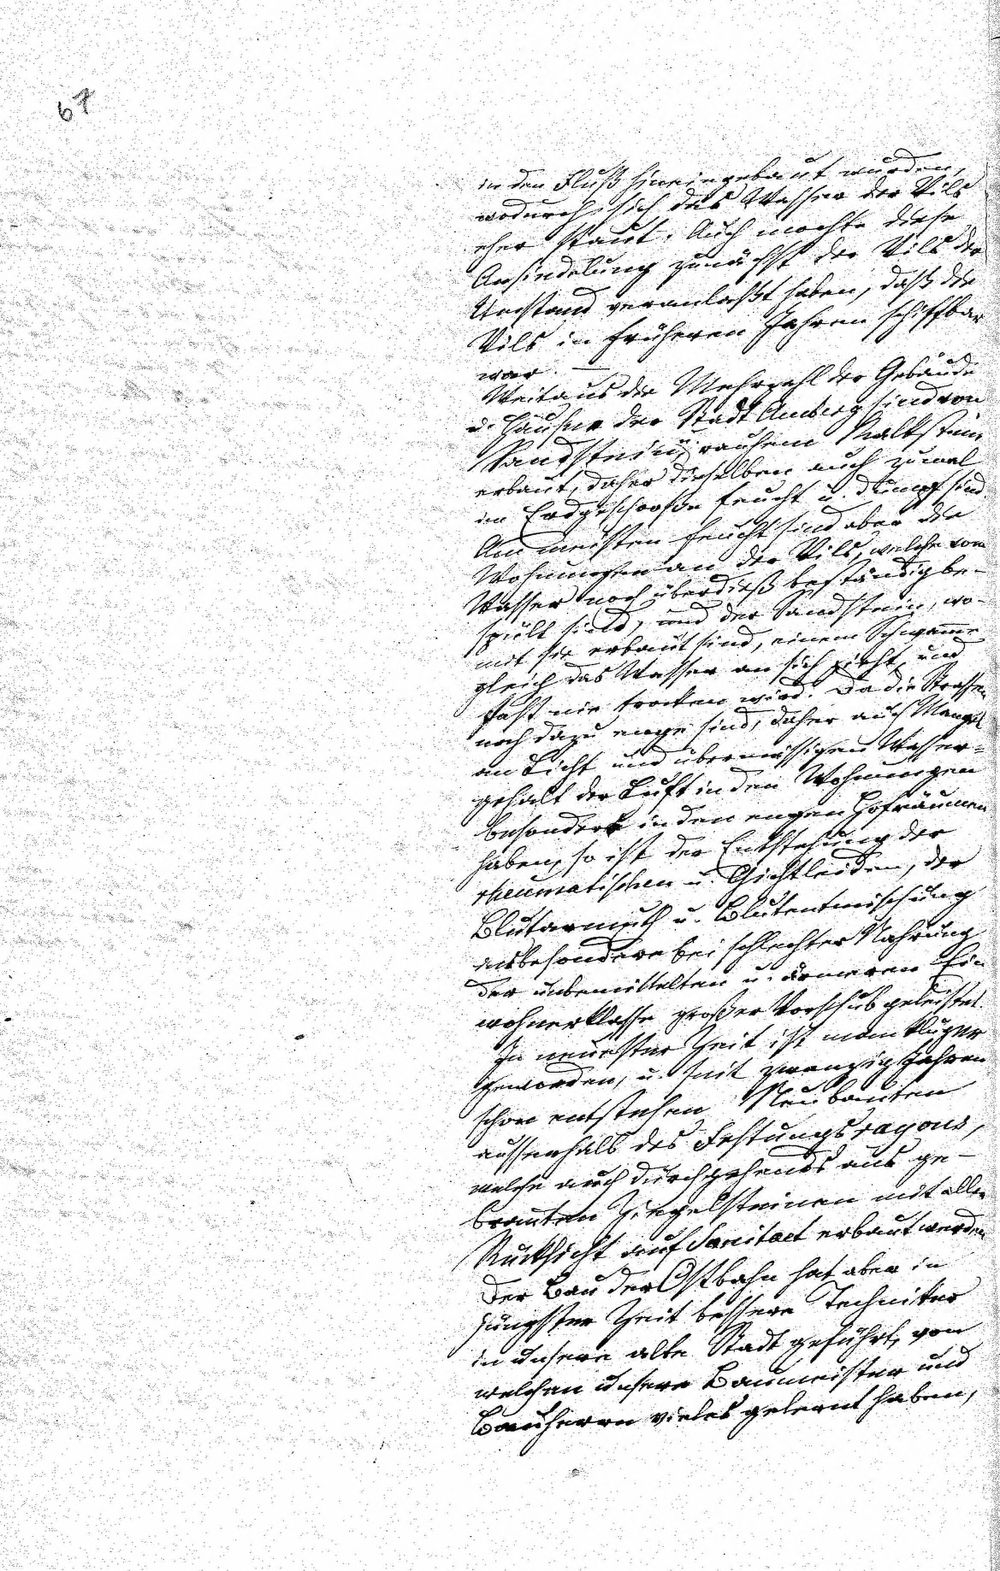 67
in den Fluß hineingebaut wurden,
wodurch sich das Wasser der Vils
eher staut. Auch mochte diese
Ansiedelung zunächst der Vils der
Umstand veranlaßt haben, daß die
Vils in früheren Jahren schiffbar
war. —
Weitaus die Mehrzahl der Gebäude
u. Häuser der Stadt Amberg sind von
Sandstein u. rauhem Kalkstein
erbaut, daher dieselben auch zumal
im Erdgeschoße feucht u. dumpf sind.
Am meisten feucht sind aber die
Wohnungen an der Vils, welche vom
Wasser noch überdieß beständig be-
spült sind, und der Sandstein, wo-
mit sie erbaut sind, einem Schwamme
gleich das Wasser an sich zieht, und
fast nie trocken wird. Da die Strassen
noch dazu enge sind, daher auch Mangel
an Licht und übermässigen Wasser-
gehalt der Luft in den Wohnungen
besonders in den engen Hofräumen
haben, so ist der Entstehung der
rheumatischen u. Gichtleiden, der
Blutarmuth u. Blutentmischung
insbesondere bei schlechter Nahrung
der unbemittelten u. ärmeren Ein-
wohnerklasse großer Vorschub geleistet.
In neuester Zeit ist man klüger
geworden, u. seit zwanzig Jahren
schon entstehen Neubauten
ausserhalb des Festungsrayons,
welche auch durchgehends aus ge-
brannten Ziegelsteinen mit aller
Rücksicht auf Sanitaet erbaut werden
Der Bau der Ostbahn hat aber in
jüngster Zeit bessere Techniker
in unsere alte Stadt geführt, von
welchen unsere Baumeister und
Bauherrn vieles gelernt haben,